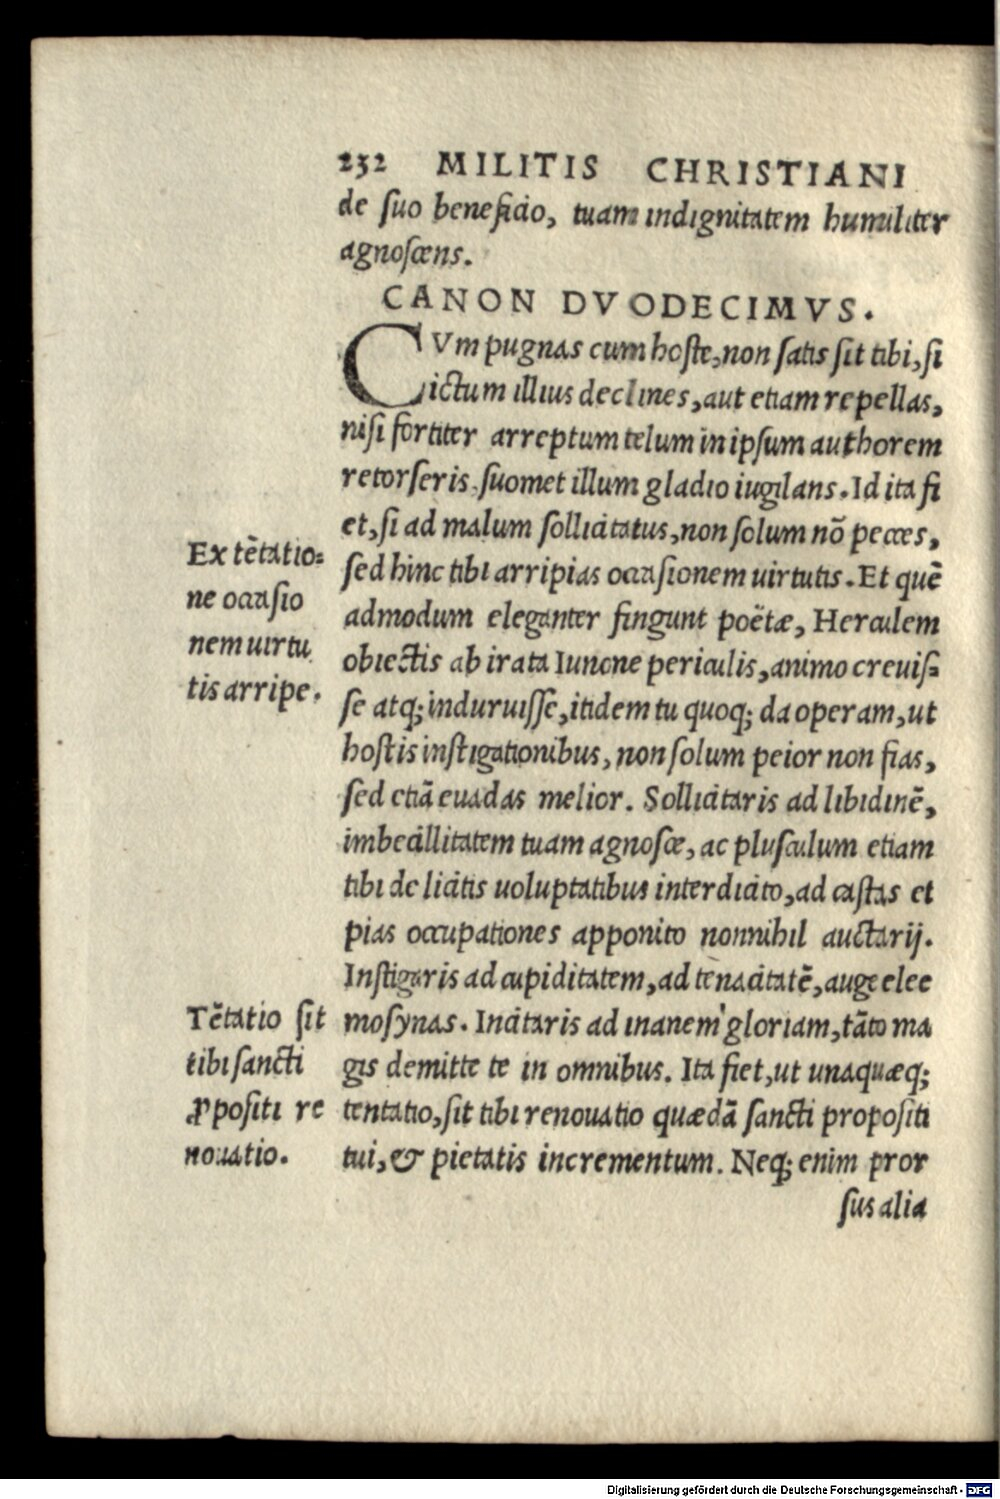 232 MILITIS CHRISTIANI
de ſuo beneficio, tuam indignitatem humiliter
agnoſcens.
CANON DVODECIMVS.
CVm pugnas cum hoſte, non ſatis ſit tibi, ſi
ictum illius declines, aut etiam repellas,
niſi fortiter arreptum telum in ipſum authorem
retorſeris, ſuomet illum gladio iugilans. Id ita fi
et, ſi ad malum ſollicitatus, non ſolum nō pecces,
ſed hinc tibi arripias occaſionem uirtutis. Et quē
admodum eleganter fingunt poëtæ, Herculem
obiectis ab irata Iunone periculis, animo creuiſ=
ſe atq; induruiſſe, itidem tu quoq; da operam, ut
hoſtis inſtigationibus, non ſolum peior non fias,
ſed etiā euadas melior. Sollicitaris ad libidinē,
imbecillitatem tuam agnoſce, ac pluſculum etiam
tibi de licitis uoluptatibus interdicito, ad caſtas et
pias occupationes apponito nonnihil auctarij.
Inſtigaris ad cupiditatem, ad tenacitatē, auge elee
moſynas. Incitaris ad inanem gloriam, tāto ma
gis demitte te in omnibus. Ita fiet, ut unaquæq;
tentatio, ſit tibi renouatio quædā ſancti propoſiti
tui, & pietatis incrementum. Neq; enim pror
ſus alia
Ex tētatio=
ne occaſio
nem uirtu
tis arripe.
Tētatio ſit
tibi ſancti
ꝓpoſiti re
nouatio.
Digitalisierung gefördert durch die Deutsche Forschungsgemeinschaft - DFG